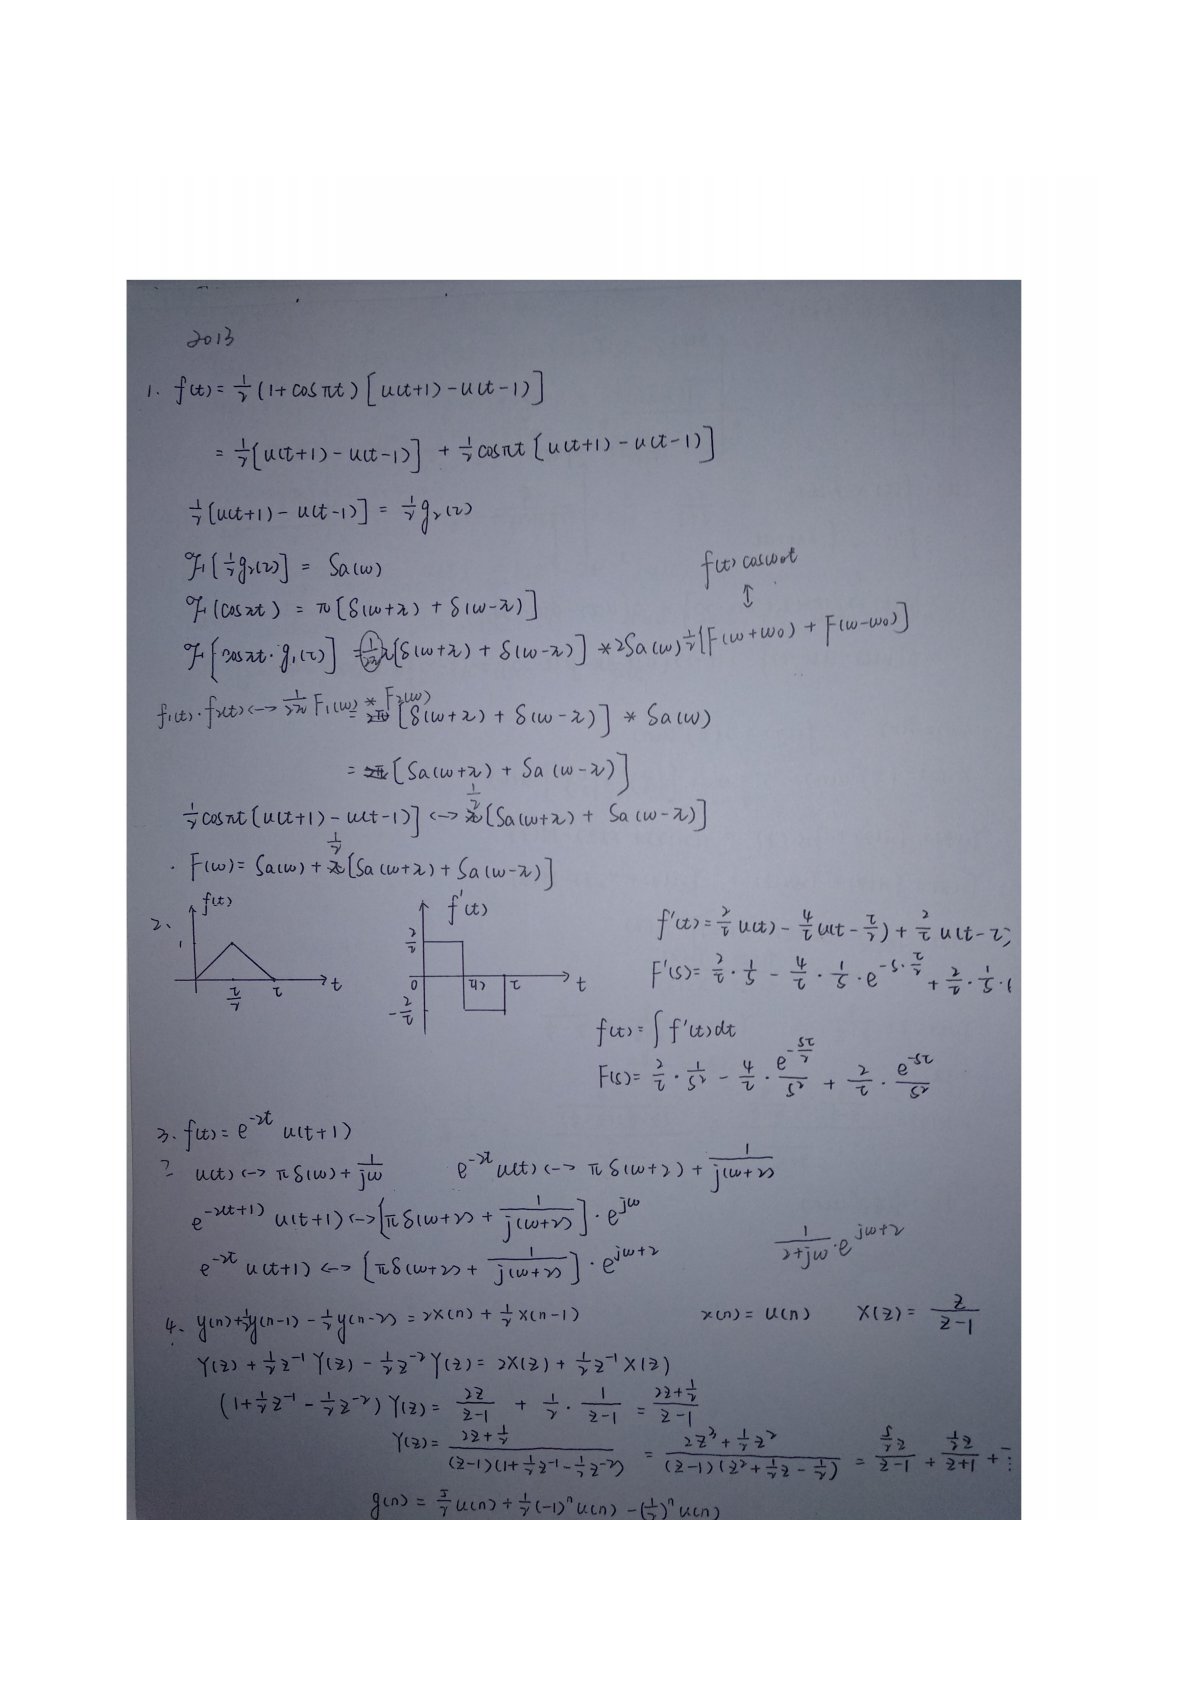 2013
1. f(t) = 1/2 (1+cosπt) [u(t+1) - u(t-1)]
= 1/2 [u(t+1) - u(t-1)] + 1/2 cosπt [u(t+1) - u(t-1)]
1/2 [u(t+1) - u(t-1)] = 1/2 g₂(τ)
f(t) cosω₀t
ℱ[1/2 g₂(τ)] = Sa(ω)
↕
ℱ(cosπt) = π[δ(ω+π) + δ(ω-π)]
1/2 [F(ω+ω₀) + F(ω-ω₀)]
ℱ[cosπt · g₁(τ)] = 1/2π π[δ(ω+π) + δ(ω-π)] * 2Sa(ω)
f₁(t)·f₂(t) <-> 1/2π F₁(ω) * F₂(ω)
= [δ(ω+π) + δ(ω-π)] * Sa(ω)
= [Sa(ω+π) + Sa(ω-π)]
1/2 cosπt [u(t+1) - u(t-1)] <-> 1/2 [Sa(ω+π) + Sa(ω-π)]
F(ω) = Sa(ω) + 1/2 [Sa(ω+π) + Sa(ω-π)]
2.
f(t)
1
τ/2
τ
t
f'(t)
2/τ
0
-2/τ
τ/2
τ
t
f'(t) = 2/τ u(t) - 4/τ u(t - τ/2) + 2/τ u(t-τ)
F'(s) = 2/τ · 1/s - 4/τ · 1/s · e^(-s·τ/2) + 2/τ · 1/s ·
f(t) = ∫ f'(t)dt
F(s) = 2/τ · 1/s² - 4/τ · e^(-sτ/2)/s² + 2/τ · e^(-sτ)/s²
3. f(t) = e^(-2t) u(t+1)
? u(t) <-> πδ(ω) + 1/jω e^(-2t) u(t) <-> πδ(ω+2) + 1/j(ω+2)
e^(-2(t+1)) u(t+1) <-> [πδ(ω+2) + 1/j(ω+2)] · e^(jω)
1/(2+jω) · e^(jω+2)
e^(-2t) u(t+1) <-> [πδ(ω+2) + 1/j(ω+2)] · e^(jω+2)
4. y(n) + 1/2 y(n-1) - 1/2 y(n-2) = 2x(n) + 1/2 x(n-1) x(n) = u(n) X(z) = z/(z-1)
Y(z) + 1/2 z⁻¹ Y(z) - 1/2 z⁻² Y(z) = 2X(z) + 1/2 z⁻¹ X(z)
(1 + 1/2 z⁻¹ - 1/2 z⁻²) Y(z) = 2z/(z-1) + 1/2 · 1/(z-1) = (2z+1/2)/(z-1)
Y(z) = (2z+1/2)/((z-1)(1+1/2 z⁻¹ - 1/2 z⁻²)) = (2z³+1/2 z²)/((z-1)(z²+1/2 z - 1/2)) = (5/2 z)/(z-1) + (1/2 z)/(z+1) +
g(n) = 5/2 u(n) + 1/2 (-1)ⁿ u(n) - (1/2)ⁿ u(n)